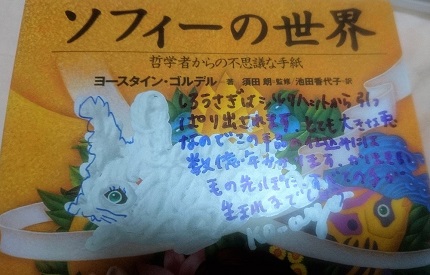 ソフィーの世界
哲学者からの不思議な手紙
ヨースタイン・ゴルデル—著 須田 朗・監修/池田香代子・訳
しろうさぎはシルクハットから引っ
ぱり出されます。とても大きな兎
なのでこの手品の仕込みには
数億年かかります。
毛の先には
生まれる